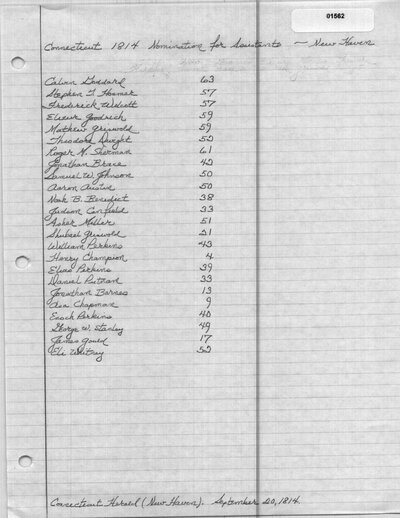 01562
Connecticut 1814 Nomination for Assistants — New Haven
Calvin Goddard 63
Stephen T. Hosmer 57
Frederick Wolcott 57
Elizur Goodrich 59
Mathew Griswold 59
Theodore Dwight 52
Roger M. Sherman 61
Jonathan Brace 42
Samuel W. Johnson 50
Aaron Austin 50
Noah B. Benedict 38
Judson Canfield 33
Asher Miller 51
Shubael Griswold 21
William Perkins 43
Henry Champion 4
Elias Perkins 39
Daniel Putnam 33
Jonathan Barnes 13
Asa Chapman 9
Enoch Perkins 40
George W. Stanley 49
James Gould 17
Eli Whitney 52
Connecticut Herald (New Haven). September 20, 1814.